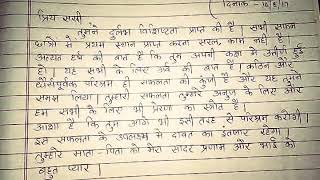 दिनांक - 16/8/17
प्रिय सखी
तुमने दुर्लभ विशिष्टता प्राप्त की है। सभी साधन
छात्रों में प्रथम स्थान प्राप्त करना सरल काम नहीं है
अत्यंत हर्ष की बात है कि तुम अपनी कक्षा में उत्तीर्ण हुई
हो। यह सभी के लिए गर्व की बात है। कठिन और
धैर्यपूर्वक परिश्रम ही सफलता की कुंजी है और यह तुमने
समझ लिया। तुम्हारी सफलता तुम्हारे अनुज के लिए और
हम सभी के लिए भी प्रेरणा का स्त्रोत है।
आशा है कि तुम आगे भी इसी तरह से परिश्रम करोगी।
इस सफलता के उपलक्ष्य में दावत का इंतजार रहेगा।
तुम्हारे माता - पिता को मेरा सादर प्रणाम और भाई को
बहुत प्यार।